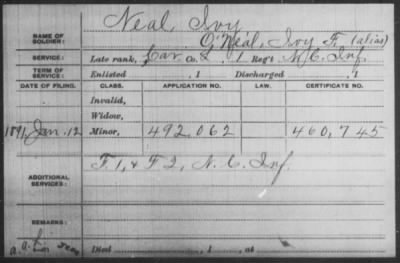 Neal, Ivy
NAME OF SOLDIER: O'Neal, Ivy F. (alias)
SERVICE: Late rank, Co. 1 Reg't N.C. Inf.
TERM OF SERVICE: Enlisted , 1 Discharged , 1
DATE OF FILING. CLASS. APPLICATION NO. LAW. CERTIFICATE NO.
Invalid,
Widow,
1891, Jan. 12 Minor, 492,062 460,745
F. 1, & F 2, N.C. Inf.
ADDITIONAL SERVICES:
REMARKS:
Died , 1 , at